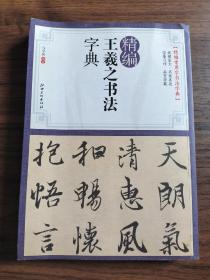 精编
王羲之书法
字典
天朗氣
清惠風
和暢懷
抱悟言